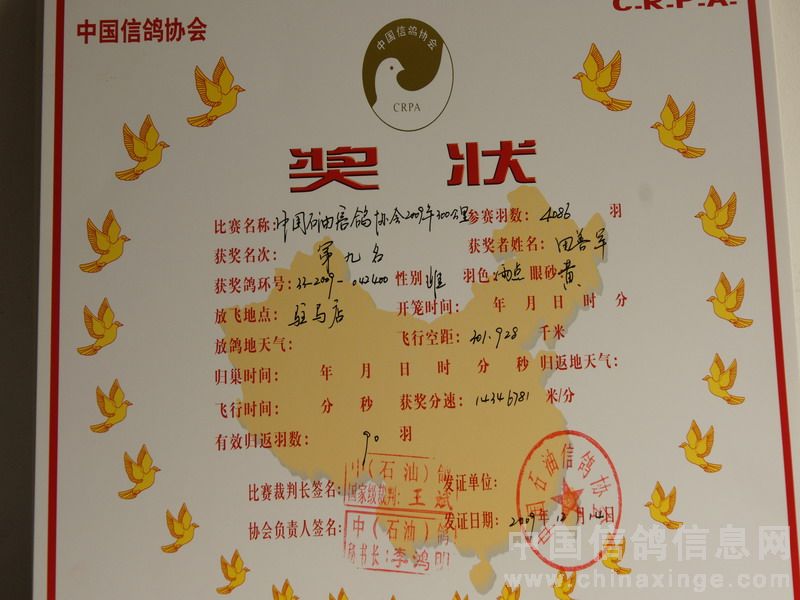 中国信鸽协会
C.R.P.A.
中国信鸽协会
CRPA
奖 状
比赛名称: 中国石油信鸽协会2009年300公里 参赛羽数: 4086 羽
获奖名次: 第九名 获奖者姓名: 田善军
获奖鸽环号: 33-2009-042400 性别 雄 羽色: 雨点 眼砂: 黄
放飞地点: 驻马店 开笼时间: 年 月 日 时 分
放鸽地天气: 飞行空距: 301.928 千米
归巢时间: 年 月 日 时 分 秒 归返地天气:
飞行时间: 分 秒 获奖分速: 1434.6781 米/分
有效归返羽数: 90 羽
中(石油)鸽
比赛裁判长签名: 国家级裁判: 王斌 发证单位:
中(石油)鸽
协会负责人签名: 秘书长: 李鸿明 发证日期: 2009年12月14日
中国石油信鸽协会
中国信鸽信息网
www.chinaxinge.com